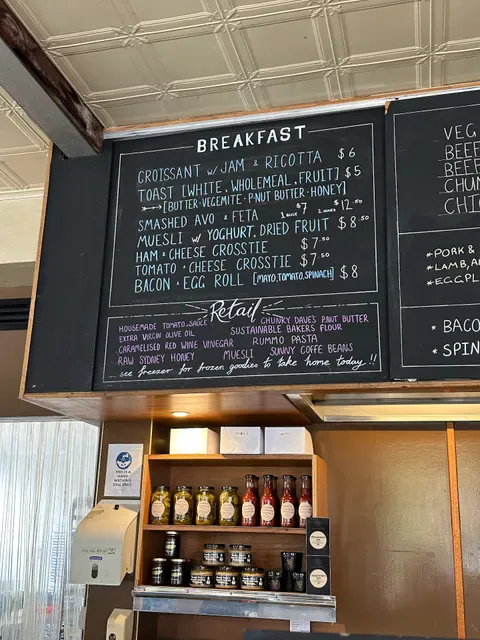 BREAKFAST
CROISSANT w/ JAM & RICOTTA $6
TOAST [WHITE, WHOLEMEAL, FRUIT] $5
[BUTTER·VEGEMITE·P.NUT BUTTER·HONEY]
SMASHED AVO & FETA 1 SLICE $7 2 SLICES $12.50
MUESLI w/ YOGHURT, DRIED FRUIT $8.50
HAM & CHEESE CROSSTIE $7.50
TOMATO & CHEESE CROSSTIE $7.50
BACON & EGG ROLL [MAYO, TOMATO, SPINACH] $8
Retail
HOUSEMADE TOMATO SAUCE CHUNKY DAVE'S P.NUT BUTTER
EXTRA VIRGIN OLIVE OIL SUSTAINABLE BAKERS FLOUR
CARAMELISED RED WINE VINEGAR RUMMO PASTA
RAW SYDNEY HONEY MUESLI SUNNY COFFE BEANS
see freezer for frozen goodies to take home today!!
VEG
BEEF
BEEF
CHUN
CHIC
*PORK &
*LAMB, A
*EGGPL
* BACO
* SPIN
THIS IS A
HAND
WASHING
SINK ONLY